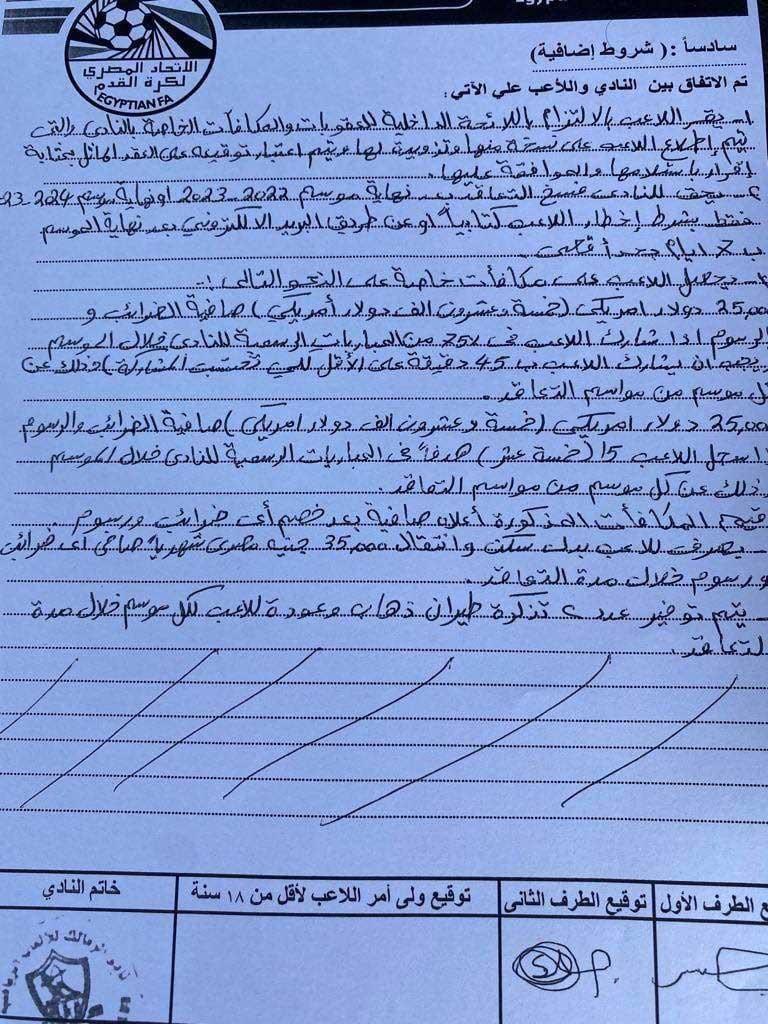 الاتحاد المصري
لكرة القدم
EGYPTIAN FA
سادساً : ( شروط إضافية )
تم الاتفاق بين النادي واللاعب علي الآتي :
١- يقر اللاعب بالالتزام باللائحة الداخلية للعقوبات والمكافآت الخاصة بالنادى والتى
يتم إطلاع اللاعب على نسخة منها وتزويده لها ويتم اعتبار توقيعه على العقد الماثل بمثابة
إقرار باستلامها والموافقة عليها .
٢- يحق للنادى فسخ التعاقد بعد نهاية موسم 2022-2023 او نهاية موسم 2024-23
فقط بشرط إخطار اللاعب كتابياً او عن طريق البريد الالكترونى بعد نهاية الموسم
ب ايام بحد أقصى .
يحصل اللاعب على مكافآت خاصة على النحو التالى :
25,00 دولار امريكى (خمسة وعشرون الف دولار أمريكى) صافية الضرائب و
الرسوم اذا شارك اللاعب فى 75% من المباريات الرسمية للنادى خلال الموسم
يجب ان يشارك اللاعب ب 45 دقيقة على الأقل لكى تحتسب المشاركة) وذلك عن
كل موسم من مواسم التعاقد .
25,00 دولار امريكى (خمسة وعشرون الف دولار امريكى) صافية الضرائب والرسوم
اذا سجل اللاعب 15 (خمسة عشر) هدفاً فى المباريات الرسمية للنادى خلال الموسم
وذلك عن كل موسم من مواسم التعاقد .
قيم المكافآت المذكورة أعلاه صافية بعد خصم أى ضرائب ورسوم .
- يصرف للاعب بدل سكن وانتقال 35,000 جنيه مصرى شهرياً صافى أى ضرائب
ورسوم خلال مدة التعاقد .
- يتم توفير عدد ٢ تذكرة طيران ذهاب وعودة للاعب لكل موسم خلال مدة
التعاقد .
ع الطرف الأول
توقيع الطرف الثانى
توقيع ولى أمر اللاعب لأقل من ١٨ سنة
خاتم النادي
نادى الزمالك للألعاب الرياضية